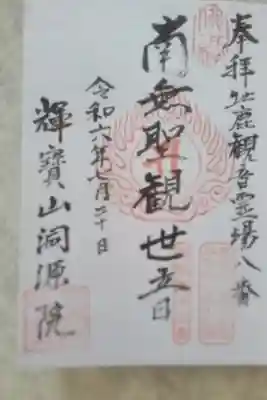 奉拝 牡鹿観音霊場八番
南無聖観世音
令和六年七月二十日
輝寶山洞源院